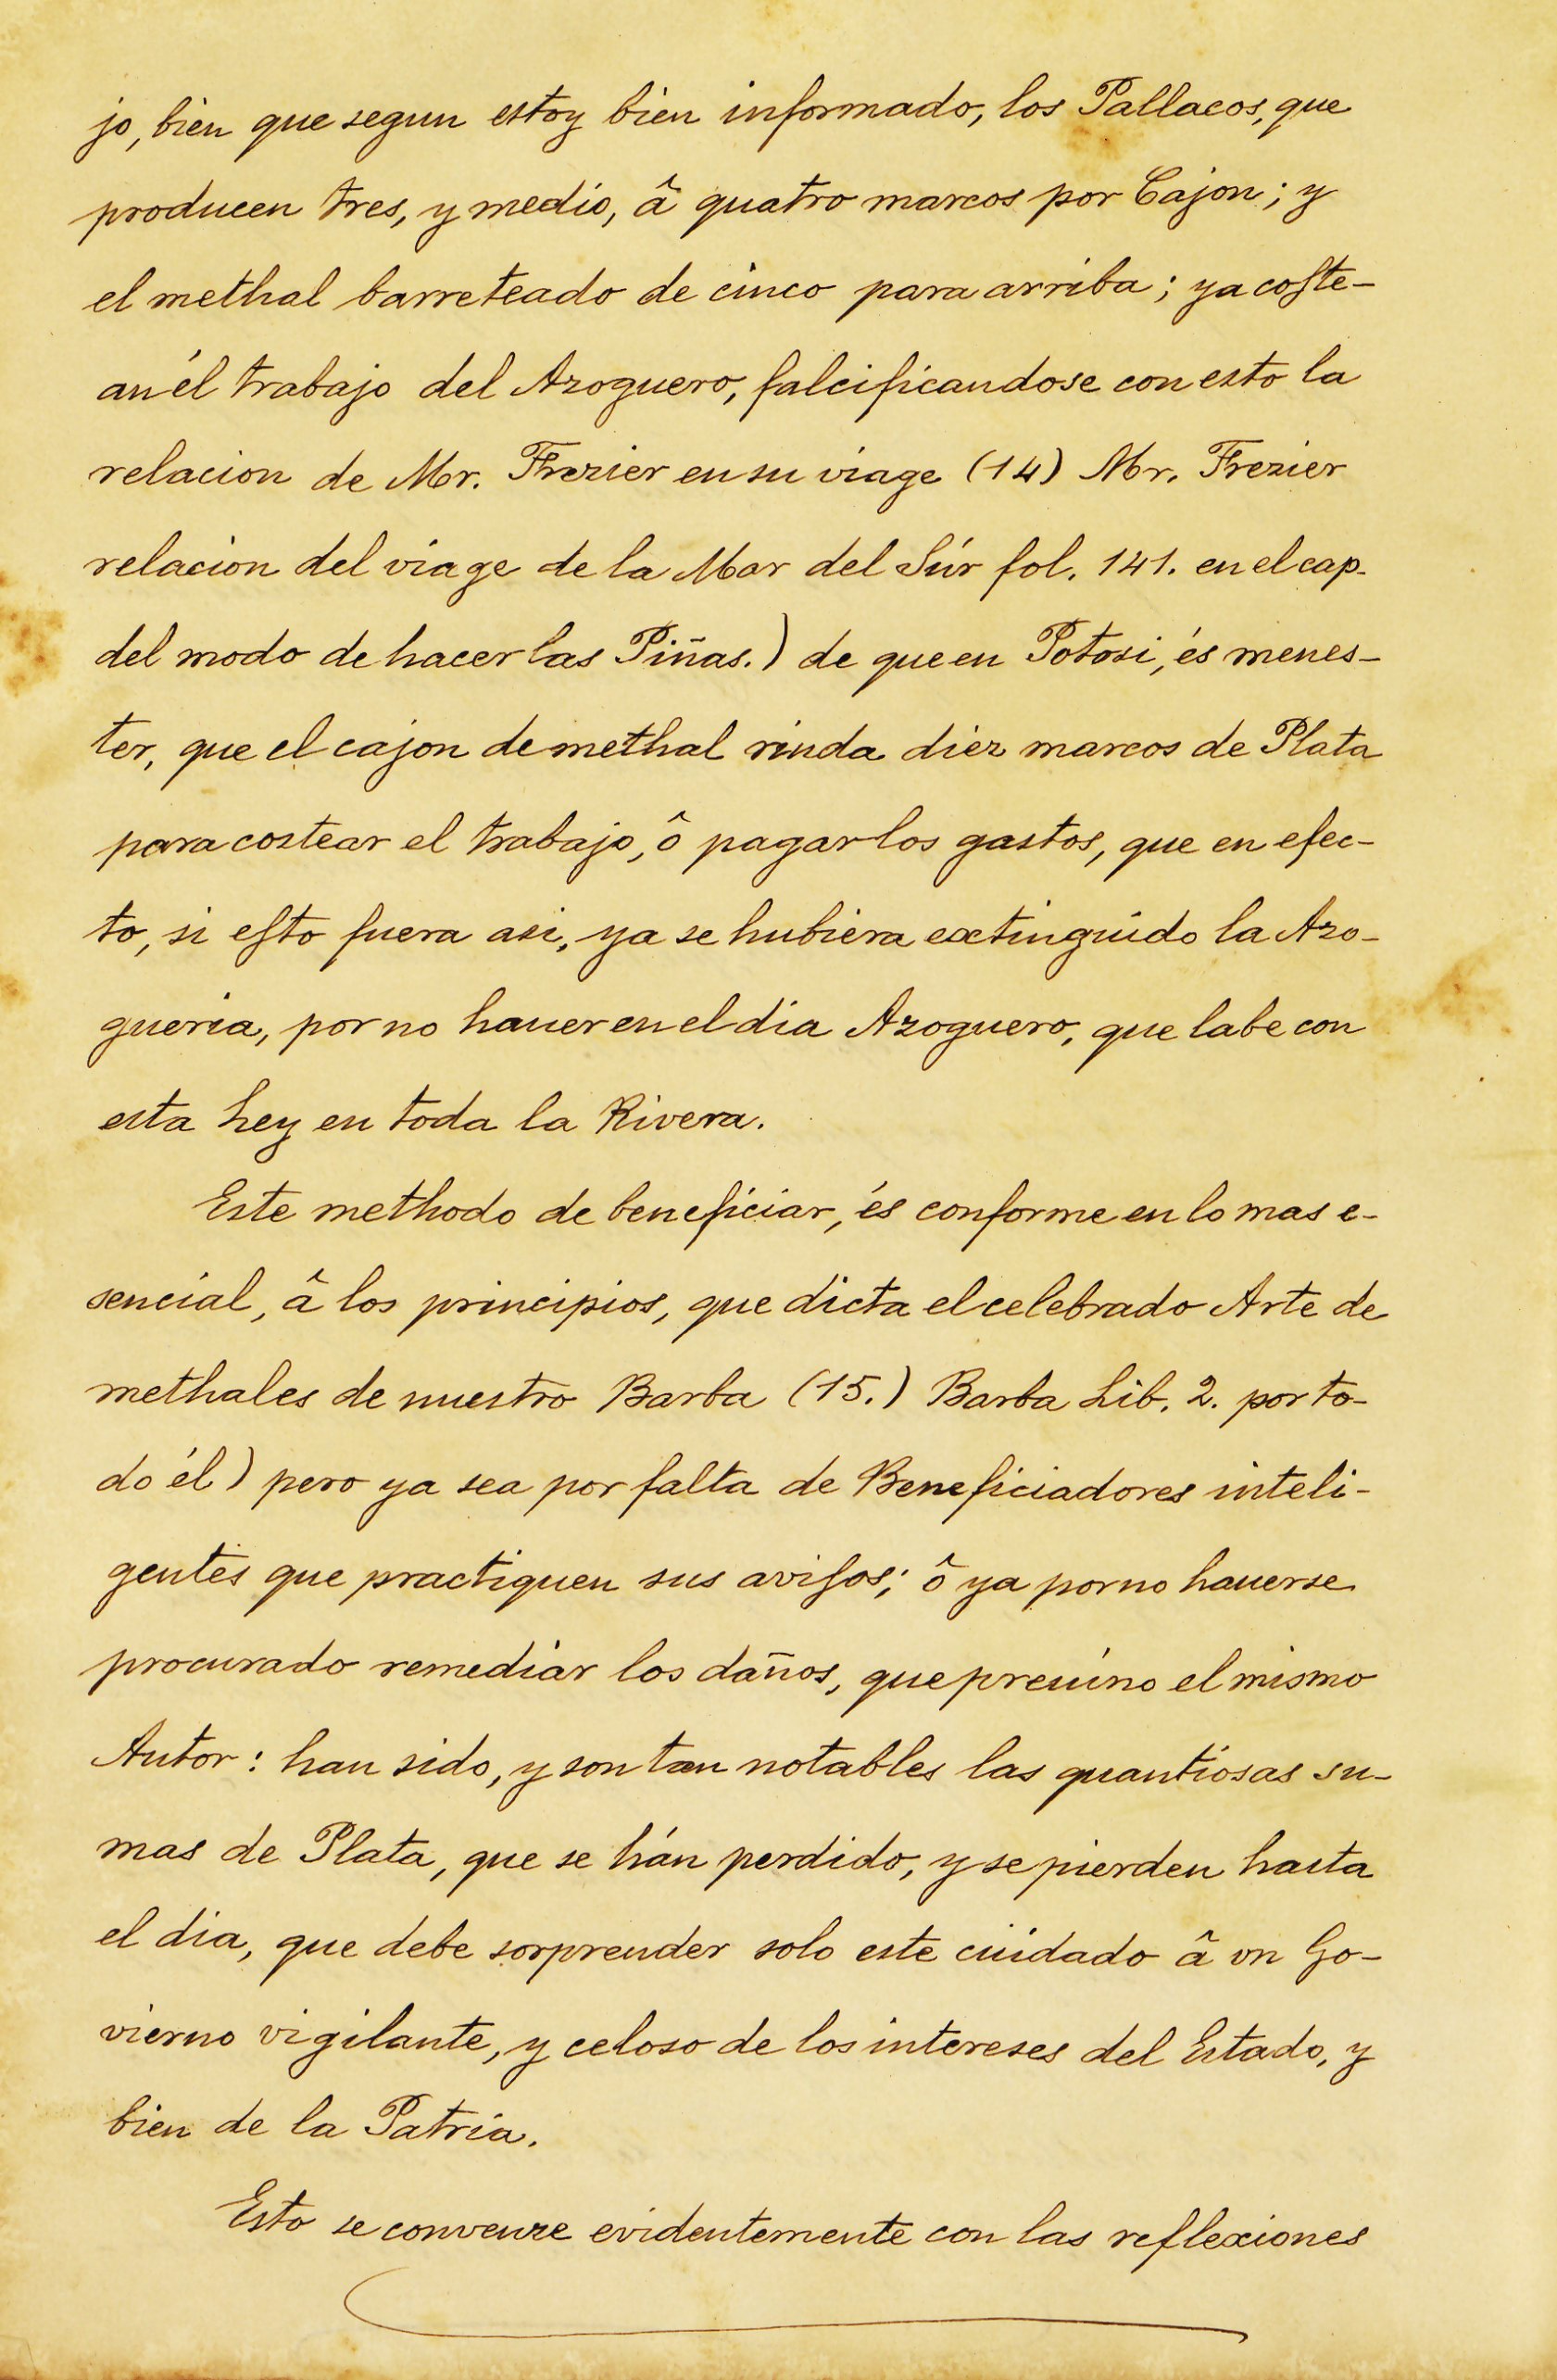 jo, bien que segun estoy bien informado, los Pallacos, que
producen tres, y medio, â quatro marcos por Cajon; y
el methal barreteado de cinco para arriba; ya coste-
an él trabajo del Azoguero, falcificandose con esto la
relacion de Mr. Frezier en su viage (14) Mr. Frezier
relacion del viage de la Mar del Súr fol. 141. en el cap.
del modo de hacer las Piñas.) de que en Potosi, és menes-
ter, que el cajon de methal rinda diez marcos de Plata
para costear el trabajo, ô pagar los gastos, que en efec-
to, si esto fuera asi, ya se hubiera extinguido la Azo-
gueria, por no hauer en el dia Azoguero, que labe con
esta Ley en toda la Rivera.
Este methodo de beneficiar, és conforme en lo mas e-
sencial, â los principios, que dicta el celebrado Arte de
methales de nuestro Barba (15.) Barba Lib. 2. por to-
do él) pero ya sea por falta de Beneficiadores inteli-
gentes que practiquen sus avisos; ô ya por no hauerse
procurado remediar los daños, que preuino el mismo
Autor: han sido, y son tan notables las quantiosas su-
mas de Plata, que se hán perdido, y se pierden hasta
el dia, que debe sorprender solo este cuidado â vn Go-
vierno vigilante, y celoso de los intereses del Estado, y
bien de la Patria.
Esto se convenze evidentemente con las reflexiones